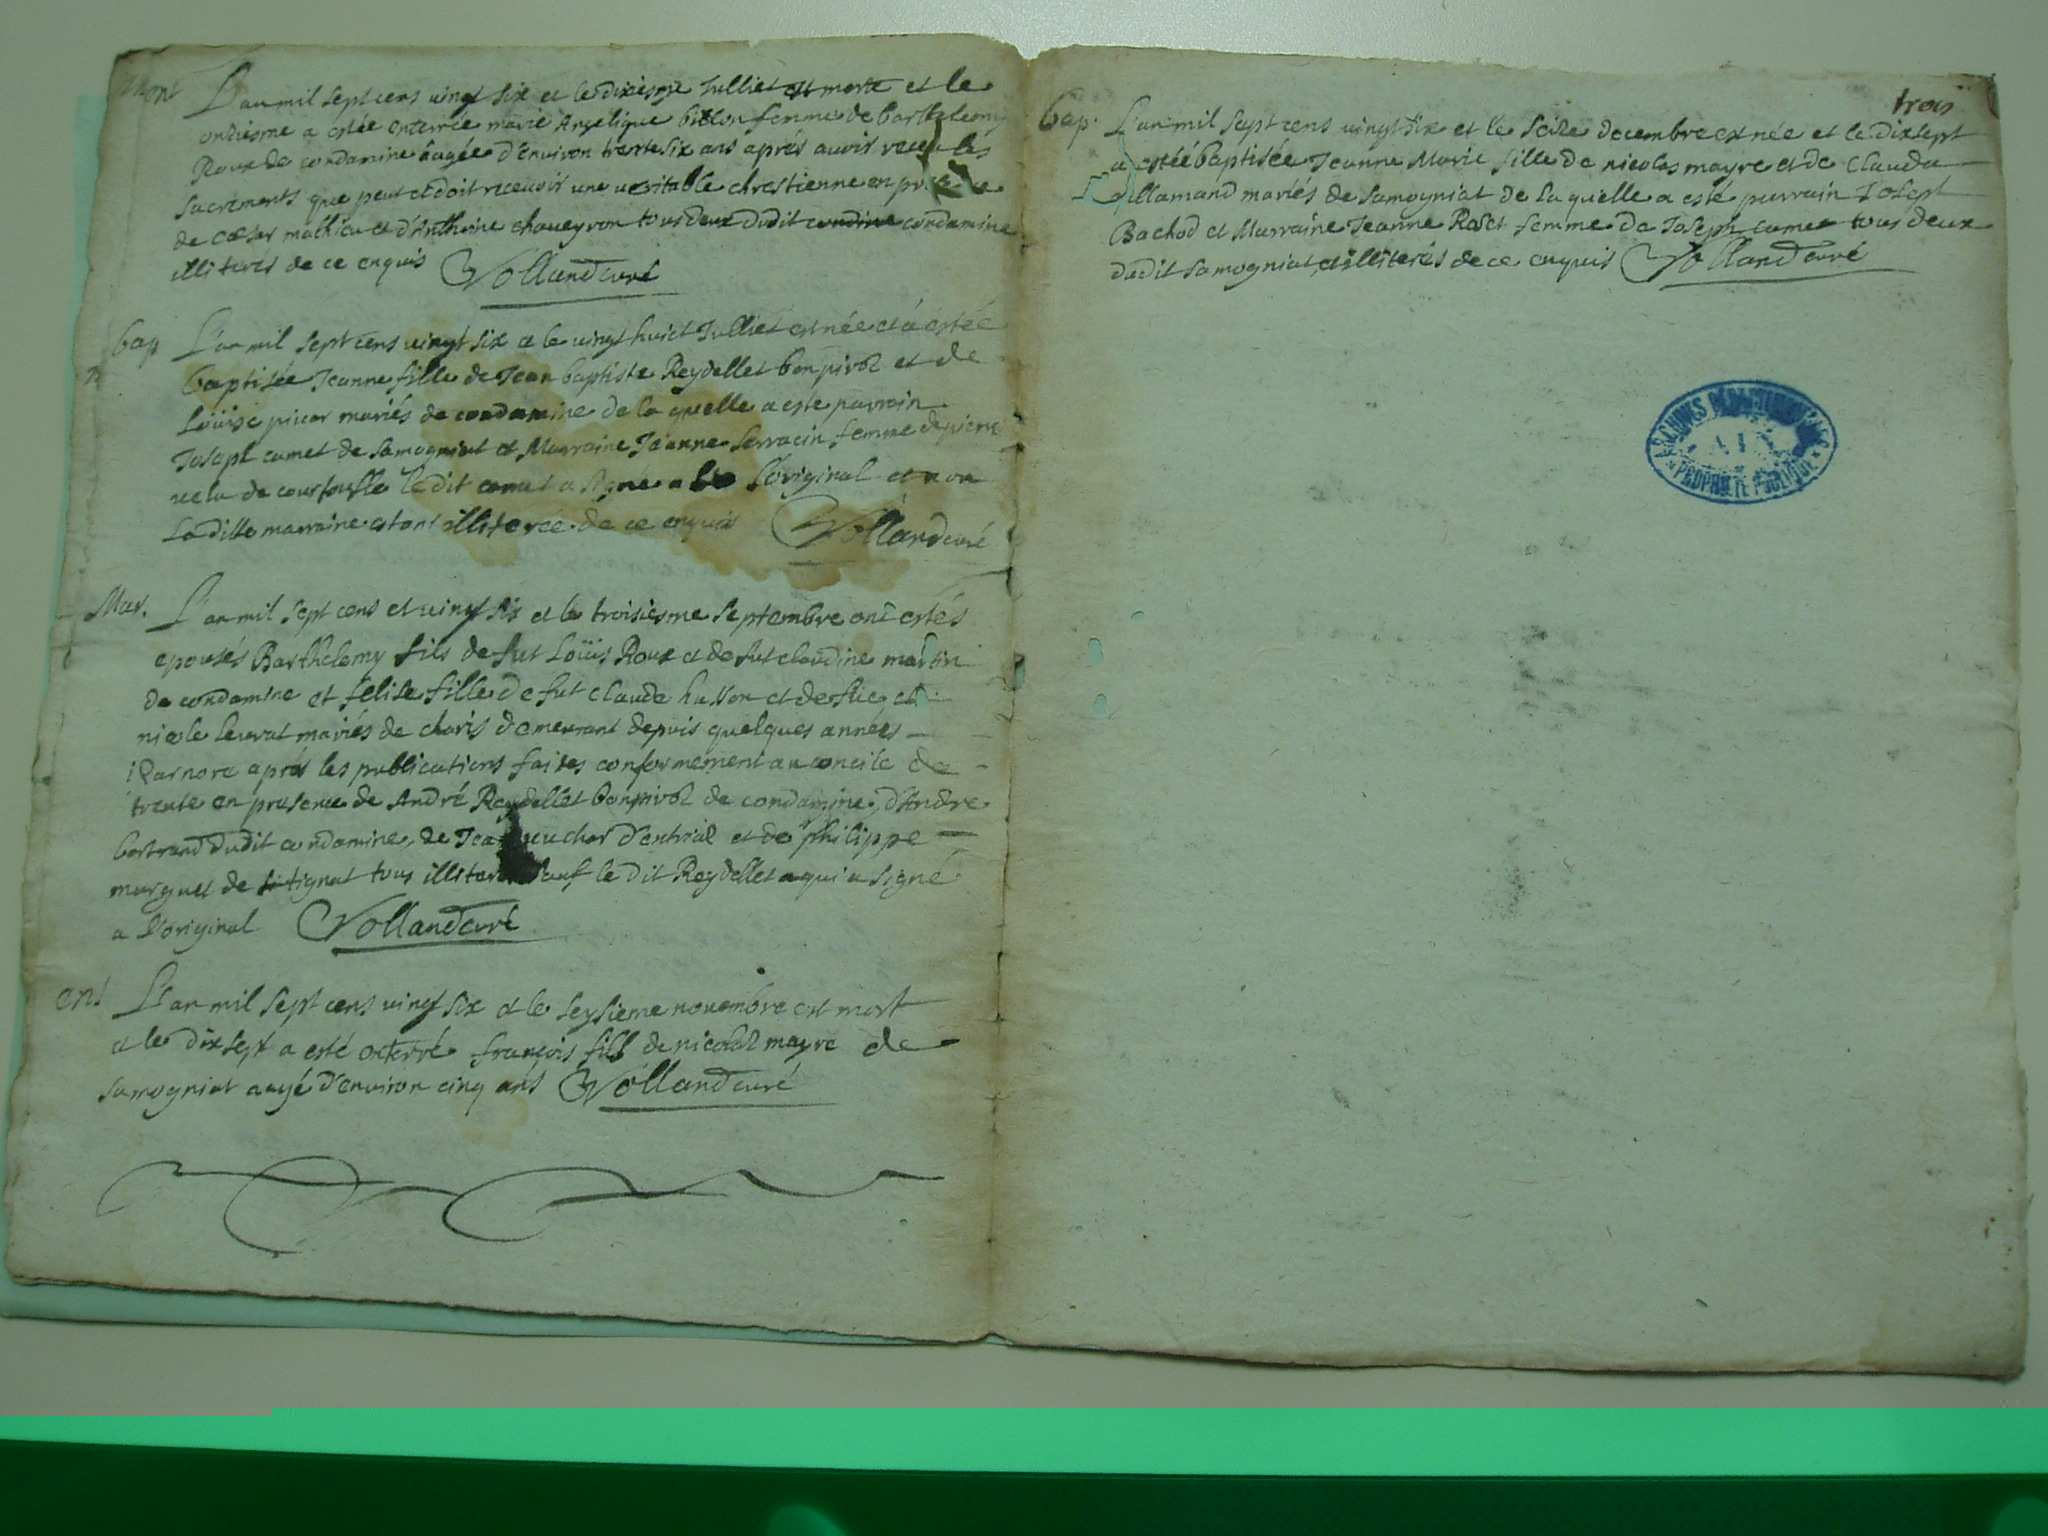 L'an mil sept cens vingt six et le dixiesme Julliet est morte et le
onziesme a estée enterrée marie Angelique femme de Barthelemy
Roux de condamine âagée d'environ trente six ans aprés auvoir receu les
sacrements que peut et doit recevoir une veritable chrestienne en
de Cæsar mathieu et d'Anthoine chaveyron tous deux dudit condamine
illiterés de ce enquis Volland curé
bap L'an mil sept cens vingt six et le vingt huict Julliet est née et a estée
baptisée Jeanne fille de Jean baptiste Reydellet bonpivol et de
Loüise mariés de condamine de la quelle a esté parrain
Joseph camet de samogniat et Marraine Jeanne Sarracin femme de pierre
de le dit camet a signé a l'original et non
La ditte marraine estant illiterée de ce enquis Volland curé
Mar. L'an mil sept cens et vingt six et le troisiesme septembre ont estés
epousés Barthelemy fils de fut Loüis Roux et de fut claudine martin
de condamine et felise fille de fut claude hugon et de
nicole levrat mariés de charis demeurant depuis quelques années
Izarnore aprés les publications faites conformement au concile de
trente en presence de André Reydellet bonpivol de condamine, d'Andre
bertrand dudit condamine, de d'entrial et de philippe
marguet de tignat tous illiterés sauf le dit Reydellet qui a signé
a l'original Volland curé
ent L'an mil sept cens vingt six et le seysieme novembre est mort
et le dix sept a esté enterré françois fils de nicolas mayre de
samogniat aagé d'environ cinq ans Volland curé
trois
bap. L'an mil sept cens vingt six et le seize decembre est née et le dix sept
a estéé baptisée Jeanne Marie fille de nicolas mayre et de Claudu
allamand mariés de samogniat de la quelle a esté parrain Joseph
Bachod et Marraine Jeanne Roset femme de Joseph camet tous deux
dudit samogniat et illiterés de ce enquis Volland curé
ARCHIVES DÉPARTEMENTALES
AIN
PROPRIÉTÉ PUBLIQUE